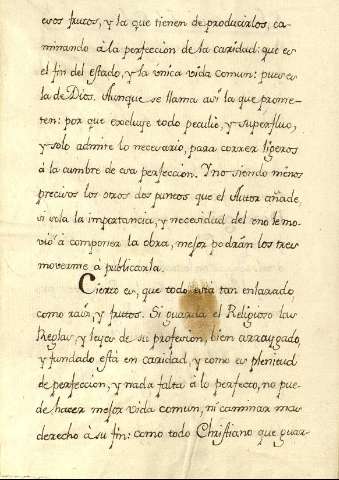 esos frutos, y la que tienen de producirlos, ca-
minando à la perfeccion de la caridad: que es
el fin del estado, y la unica vida comun: pues es
la de Dios. Aunque se llama asi la que prome-
ten: por que excluye todo peculio, y superfluo,
y solo admite lo necesario, para correr ligeros
à la cumbre de esa perfeccion. Y no siendo menos
precisos los otros dos puntos que el Autor añade,
si sola la importancia, y necesidad del uno le mo-
viò à componer la obra, mejor podràn los tres
moverme à publicarla.
Cierto es, que todo està tan enlazado
como raiz, y frutos. Si guarda el Religioso las
Reglas, y leyes de su profesion, bien arraygado,
y fundado està en caridad, y como es plenitud
de perfeccion, y nada falta à lo perfecto, no pue-
de hacer mejor vida comun, ni caminar mas
derecho à su fin: como todo Christiano que guar-